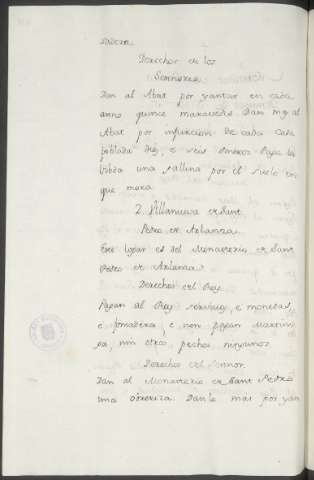 Derechos de los
Sennores.
Dan al Abat por yantar en cada
anno quince maravedis. Dan mas al
Abat por infurcion de cada casa
poblada
una gallina por el suelo en
que mora
2. Villanueva de Sant
Pedro de Arlanza.
Este logar es del Monasterio de Sant
Pedro de Arlanza
Derechos del Rey
Pagan al Rey servicios, e monedas,
e fonsadera, e non pagan Martini
ega, nin otros pechos ningunos
Derechos del Sennor.
Dan al Monasterio de Sant Pedro
una Danle mas por yan